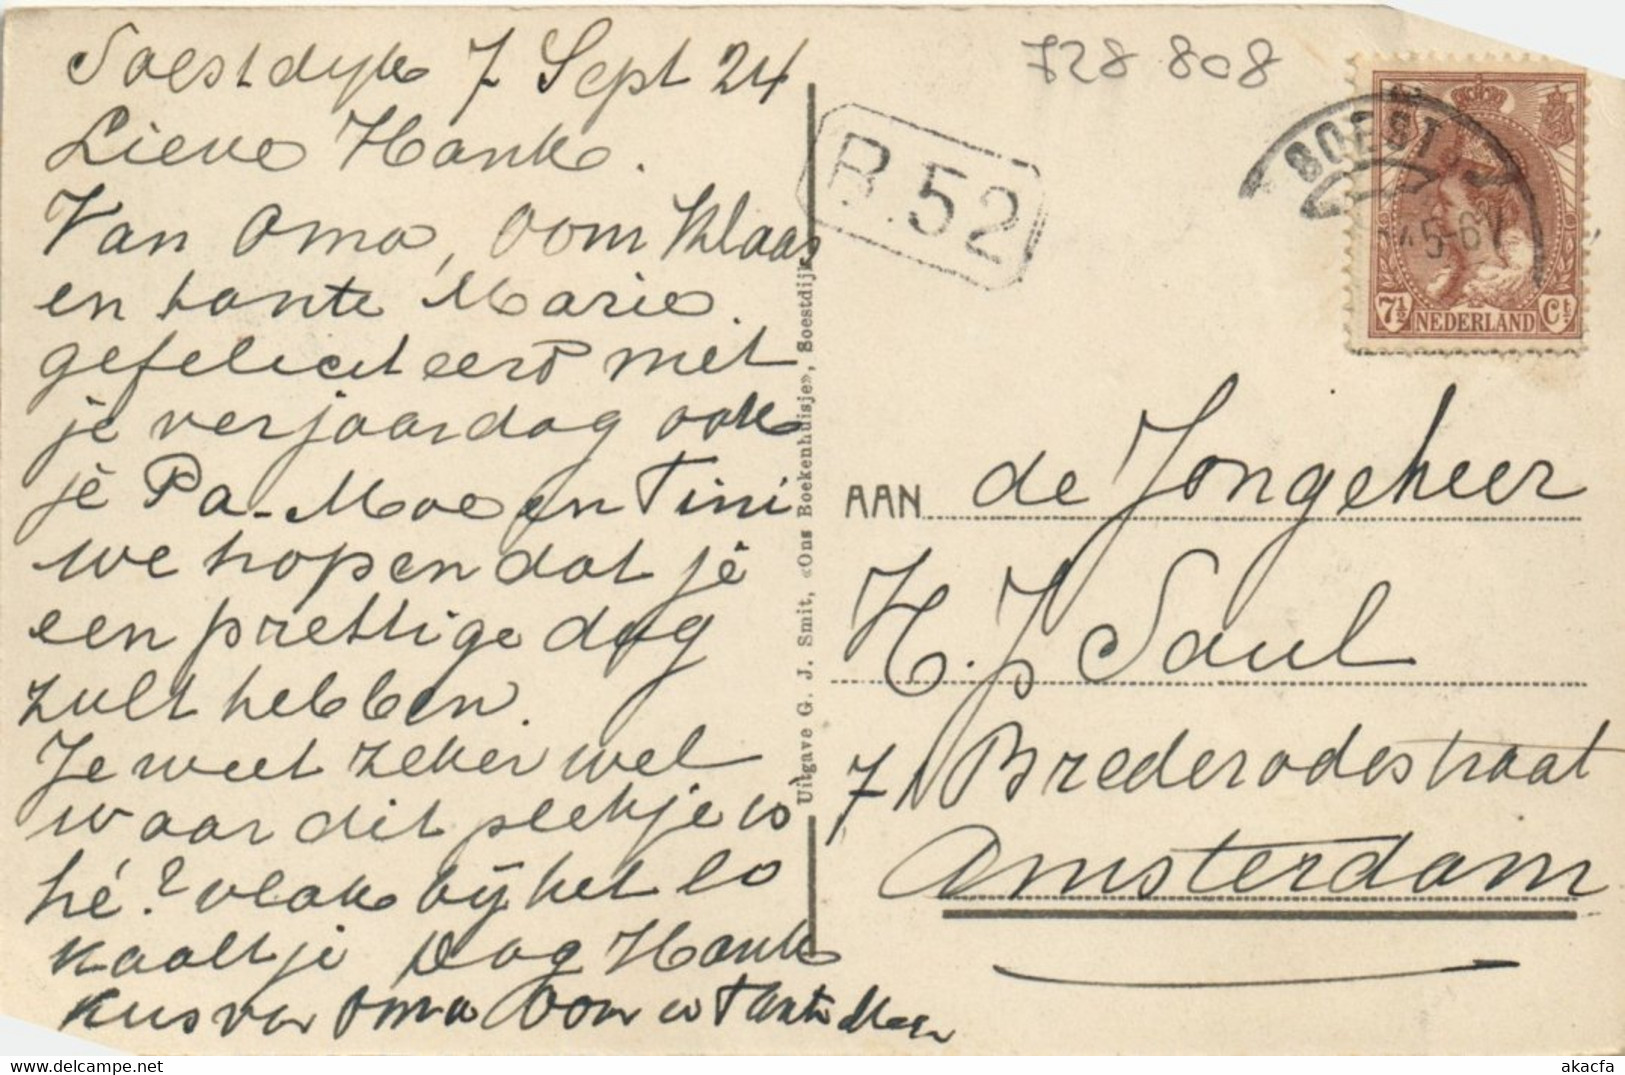 Soestdijk 7 Sept 24
Lieve Hank.
Van Oma, Oom Klaas
en tante Marie.
gefeliciteerd met
je verjaardag ook
je Pa-Moe en Tini
we hopen dat je
een prettige dag
zult hebben.
Je weet zeker wel
waar dit plekje is
hé? vlak bij het lo
kaaltje Dag Hank
Kus van Oma Oom en Tante Marie
Uitgave G. J. Smit, «Ons Boekenhuisje», Soestdijk.
728 808
B.52
SOEST
5-6
7½ NEDERLAND Ct
AAN de Jongeheer
H. J. Saul
71 Brederodestraat
Amsterdam
akacfa